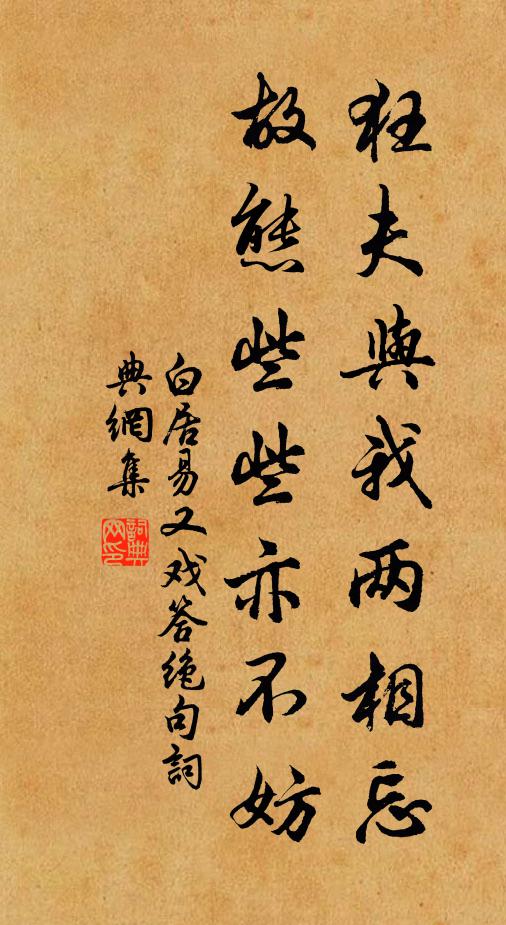 狂夫與我两相忘
故態些些亦不妨
白居易又戏答绝句詞
典網集
詞典网印